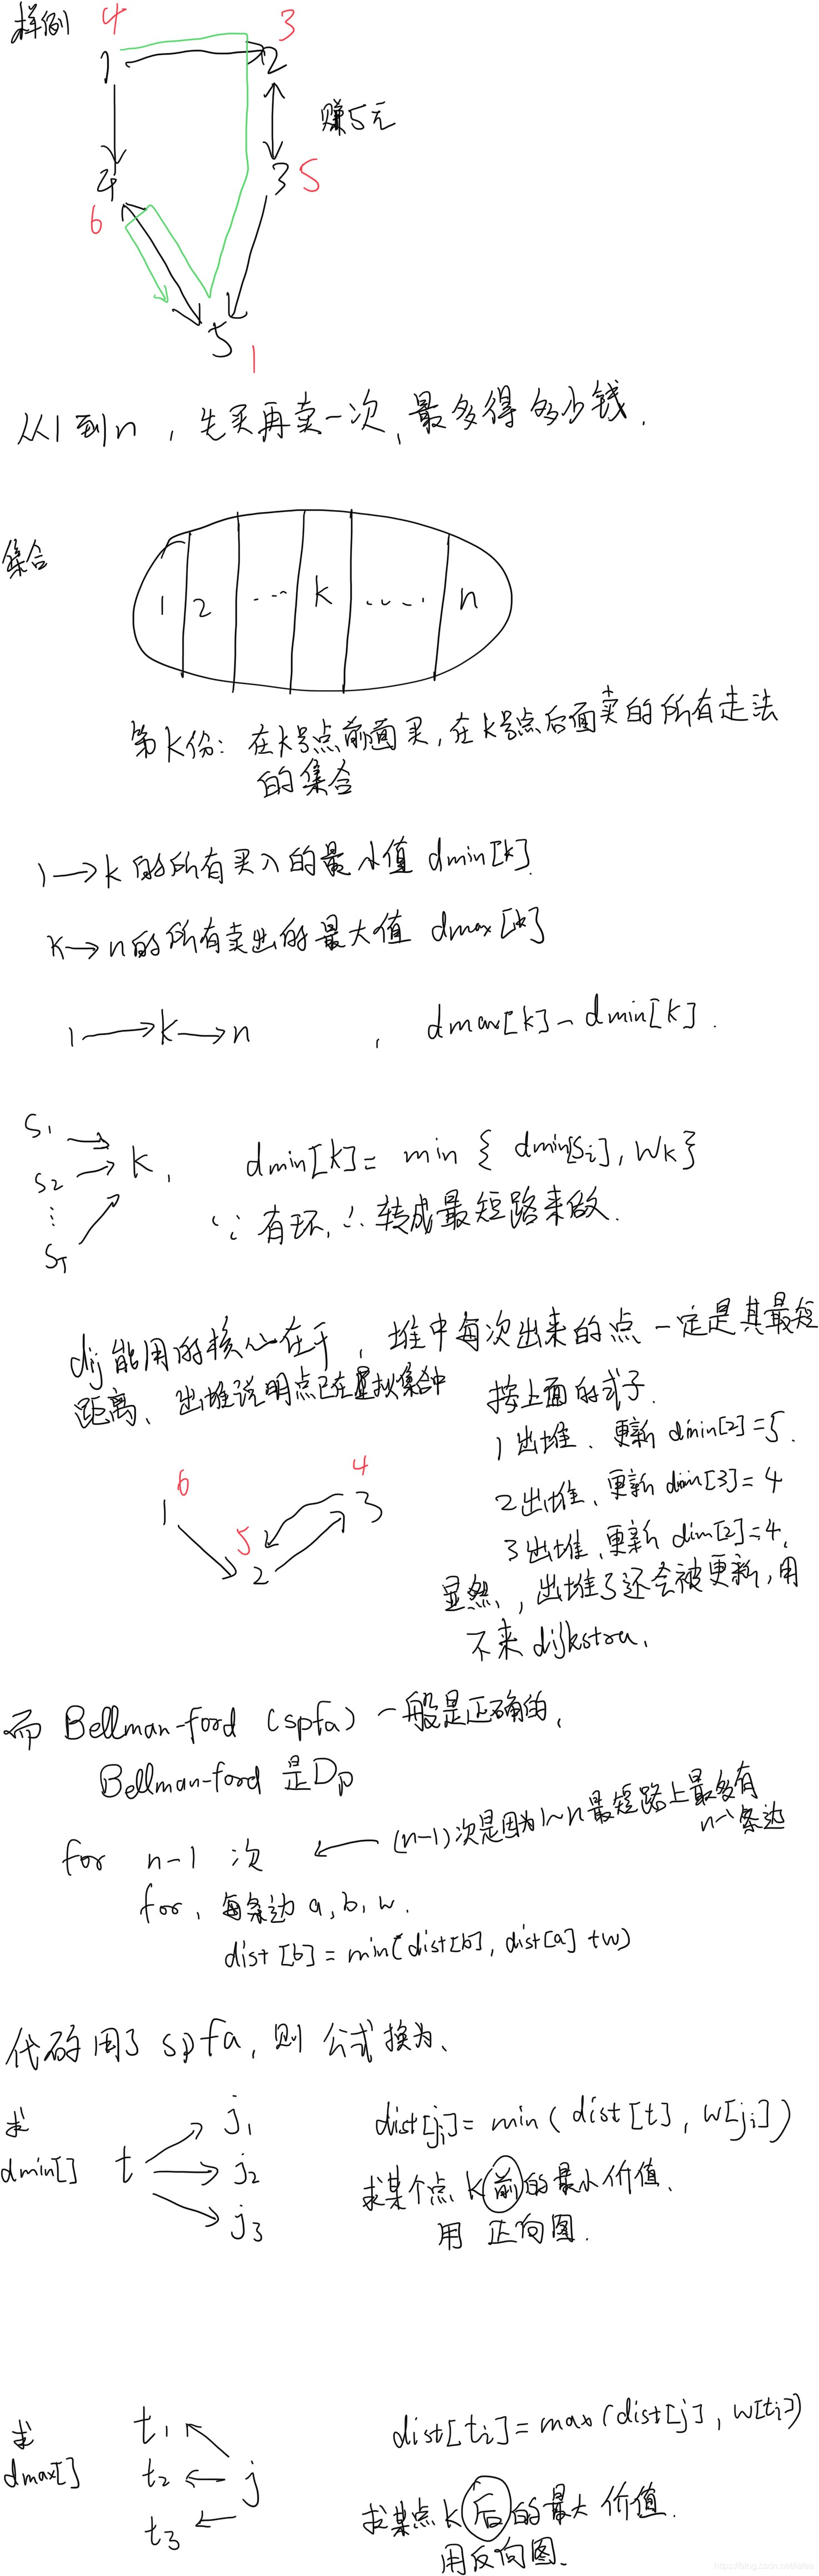 样例
4
3
1
2
赚5元
4
3
5
6
5
1
从1到n，先买再卖一次，最多得多少钱.
集合
1 2 ... k ..... n
第k份：在k号点前面买，在k号点后面卖的所有走法
的集合
1→k的所有买入的最小值 dmin[k]
k→n的所有卖出的最大值 dmax[k]
1→k→n , dmax[k]-dmin[k].
S1
S2
⋮
ST
k, dmin[k]= min { dmin[Si], Wk}
∵有环,∴转成最短路来做.
dij能用的核心在于，堆中每次出来的点一定是其最短
距离、出堆说明点已在集合中
按上面的式子.
1出堆、更新 dmin[2]=5.
2出堆、更新 dmin[3]=4
3出堆、更新 dmin[2]=4.
6
1
5
2
4
3
显然，出堆了还会被更新,用
不来 dijkstra.
而 Bellman-ford (spfa) 一般是正确的,
Bellman-ford 是Dp
for n-1 次 ← (n-1)次是因为1~n最短路上最多有
n-1条边
for, 每条边 a, b, w.
dist[b]=min(dist[b], dist[a]+w)
代码用了 spfa, 则 公式换为、
求
dmin[]
t
j1
j2
j3
dist[ji]= min(dist[t], w[ji])
求某个点 k前的最小价值.
用 正向图.
求
dmax[]
t1
t2
t3
j
dist[ti]=max(dist[j], w[ti])
求某点k后的最大价值.
用反向图.